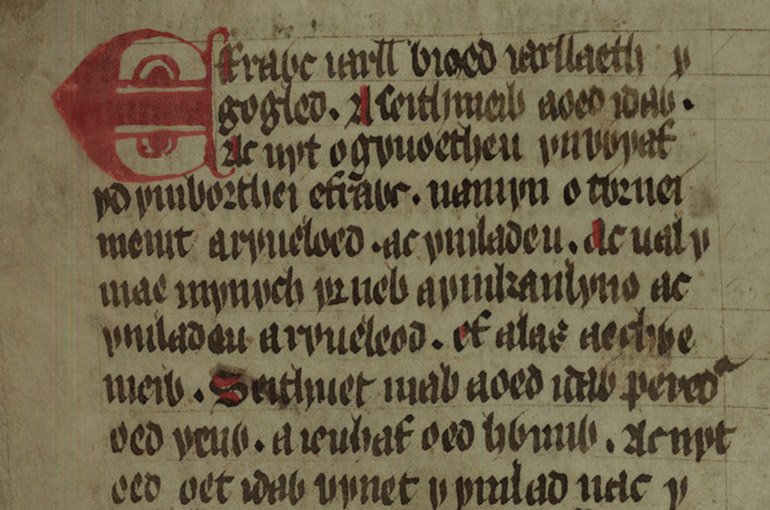 Efrawc iarll bioed iarllaeth y
gogled. A seithmeib aoed idaw.
Ac nyt ogyuoetheu ynvwyaf
yd ymborthei efrawc. namyn o tornei
meint aryueloed. ac ymladeu. Ac ual y
mae mynych yrneb aymkanlyno ac
ymladeu aryueleod. ef alas aechwe
meib. Seithuet mab aoed idaw pered
oed yenw. a ieuhaf oed hwnnw. Ac nyt
oed oet idaw vynet y ymlad nac y